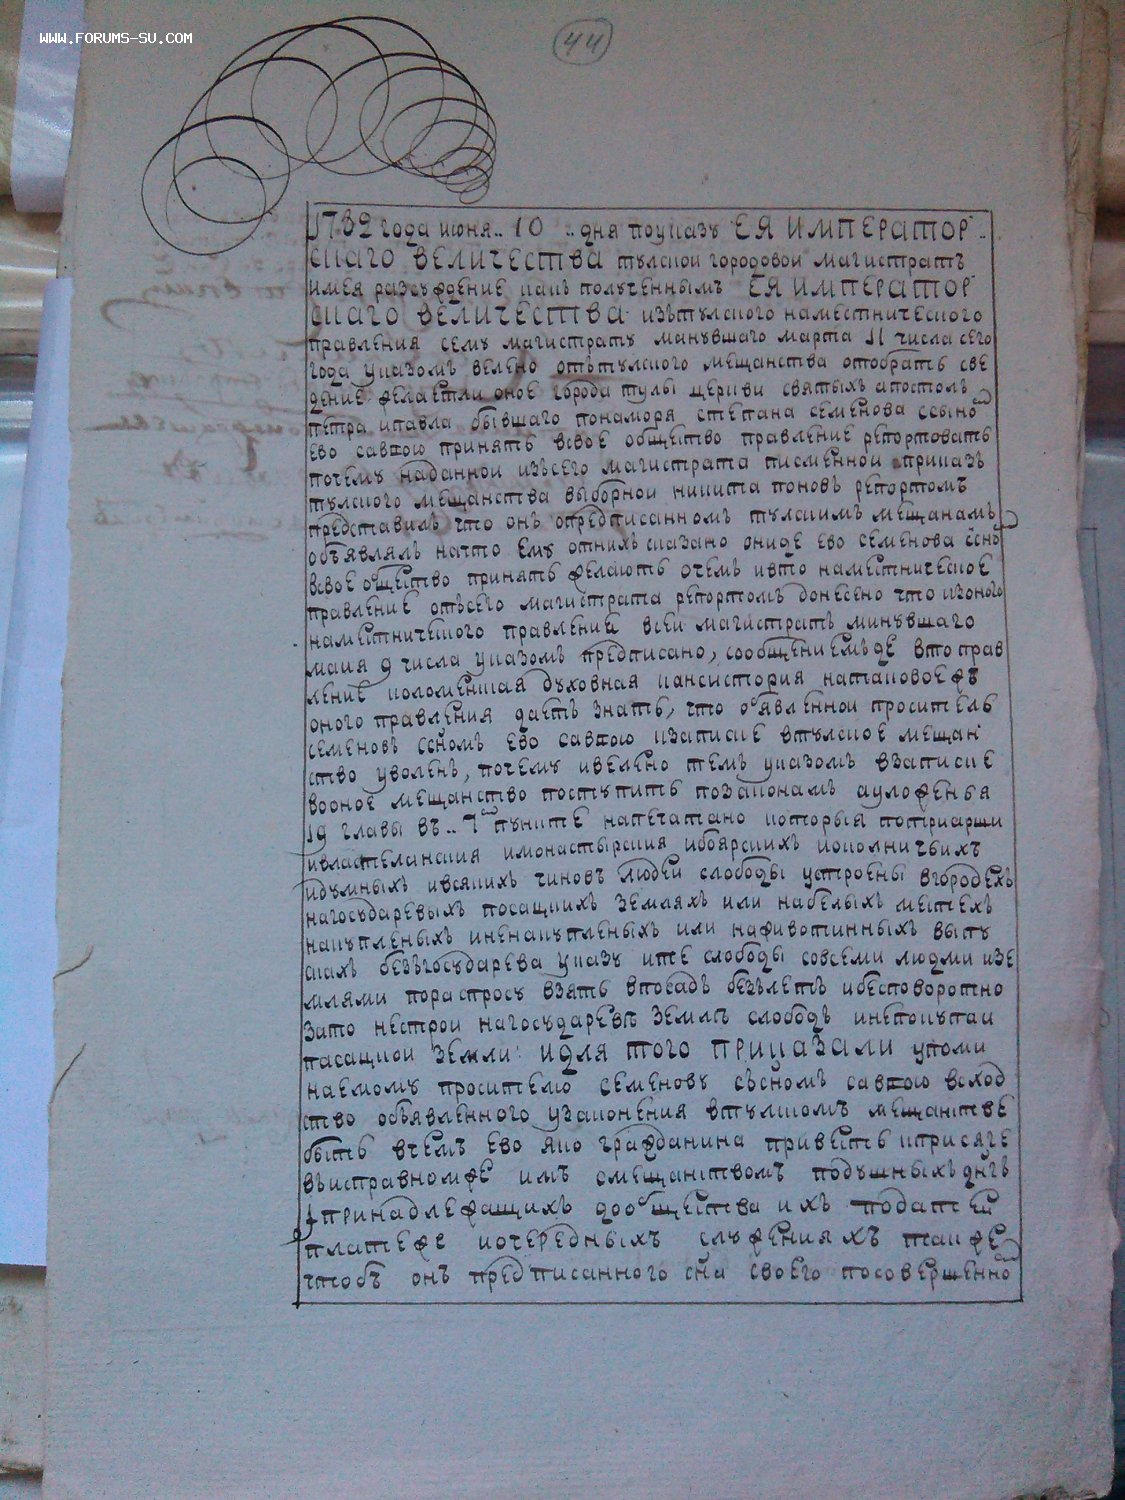 WWW.FORUMS-SU.COM
44
1782 года июня.. 10 .. дня поуказу ЕЯ ИМПЕРАТОР
СКАГО ВЕЛИЧЕСТВА тулскои городовои магистратъ
имея разсуждение какъ полученнымъ ЕЯ ИМПЕРАТОР
СКАГО ВЕЛИЧЕСТВА изътулского наместнического
правления сему магистрату минувшаго марта 11 числа сего
года указомъ велено отътулского мещанства отобрать све
дение желаетли оное города тулы церкви святыхъ апостолъ
петра ипавла бывшаго понаморя степана семенова ссыно
ево савою принять всвое общество правление репортовать
почему наданнои изъсего магистрата писменнои приказъ
тулского мещанства выборнои никита поповъ репортомъ
представилъ что онъ опредписанномъ тулскимъ мещанамъ
объявлялъ начто ему отнихъ сказано ониде ево семенова ссно
всвое общество принять желаютъ очемъ ивто наместническое
правление отъсего магистрата репортомъ донесено что изоного
наместнического правления всеи магистратъ минувшаго
маия 9 числа указомъ предписано, сообщениемъде вто прав
ление коломенская духовная канситория натаковоежъ
оного правления даетъ знать, что объявленнои проситель
семеновъ ссномъ ево савою кзаписке втулское мещан
ство уволенъ, почему ивелено темъ указомъ взаписке
вооное мещанство поступить позаконамъ ауложенья
19 главы въ.. 7 пункте напечатано которыя потриарши
ивластелинския имонастырския ибоярскихъ иокольничьихъ
идумныхъ ивсякихъ чиновъ людеи слободы устроены вгородехъ
нагосударевыхъ посацкихъ земляхъ или набелыхъ местехъ
накупленыхъ иненакупленыхъ или наживотинныхъ выпу
скахъ безъгосударева указу ите слободы совсеми людми изе
млями пораспросу взять впосадъ безълетъ ибесповоротно
зато нестрои нагосударевъ землъ слободъ инепокупаи
пасацкои земли: идля того ПРИКАЗАЛИ упоми
наемому просителю семенову съсномъ савою всход
ство объявленного узаконения втулскомъ мещанстве
быть вчемъ ево яко гражданина привесть кприсяге
въисправномже имъ смещанствомъ подушныхъ днгъ
принадлежащихъ дообщества ихъ податеи
платеже иочередныхъ служенияхъ также
чтобъ онъ предписанного сна своего посовершенно